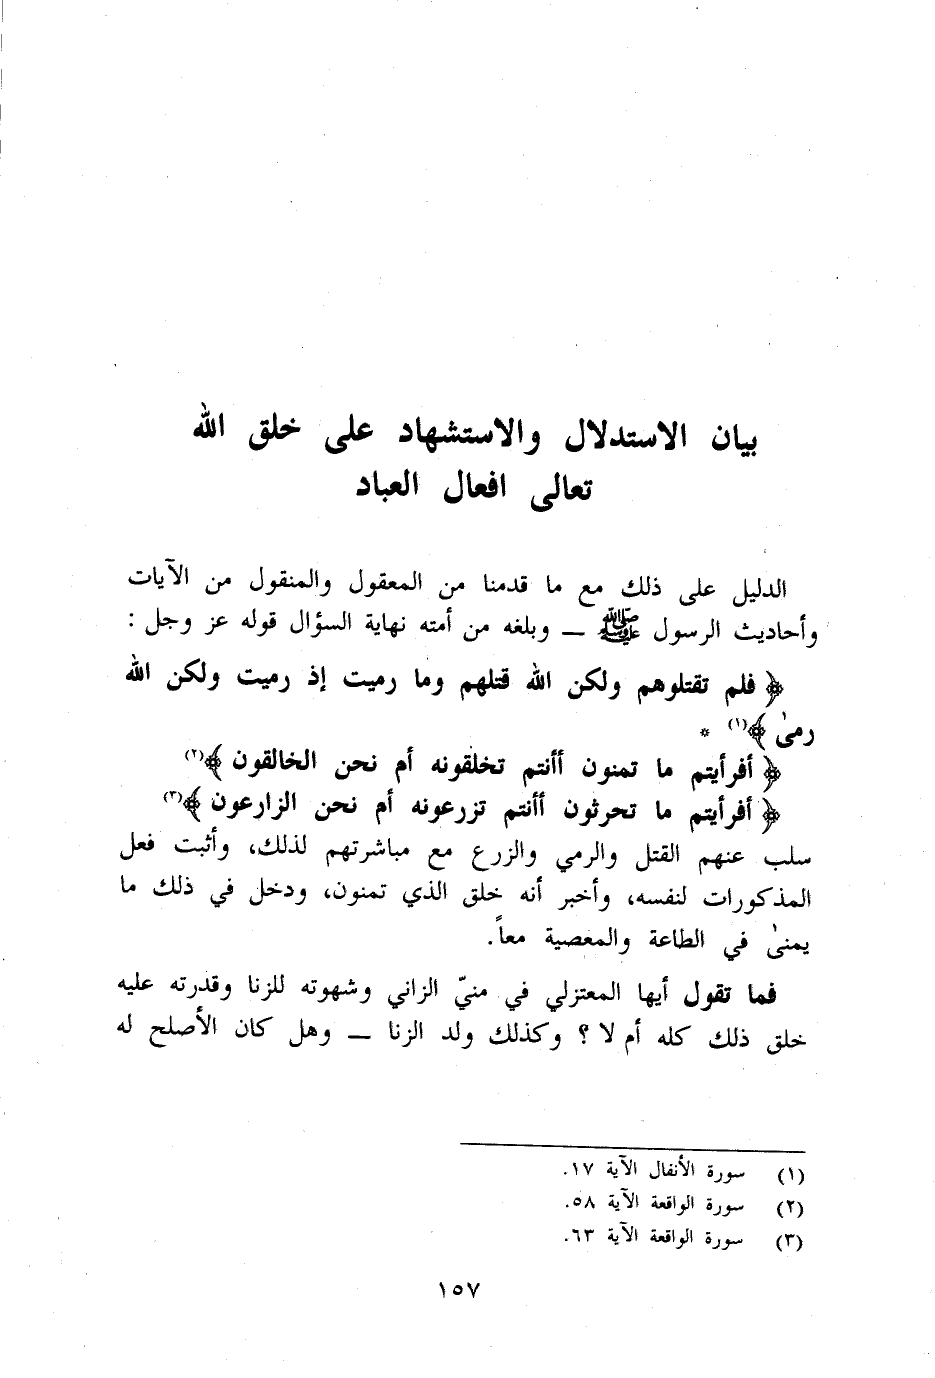 بيان الاستدلال والاستشهاد على خلق الله
تعالى افعال العباد
الدليل على ذلك مع ما قدمنا من المعقول والمنقول من الآيات
وأحاديث الرسول ﷺ — وبلغه من أمته نهاية السؤال قوله عز وجل :
﴿ فلم تقتلوهم ولكن الله قتلهم وما رميت إذ رميت ولكن الله
رمىٰ ﴾(١) *
﴿ أفرأيتم ما تمنون أأنتم تخلقونه أم نحن الخالقون ﴾(٢)
﴿ أفرأيتم ما تحرثون أأنتم تزرعونه أم نحن الزارعون ﴾(٣)
سلب عنهم القتل والرمي والزرع مع مباشرتهم لذلك، وأثبت فعل
المذكورات لنفسه، وأخبر أنه خلق الذي تمنون، ودخل في ذلك ما
يمنىٰ في الطاعة والمعصية معاً.
فما تقول أيها المعتزلي في منيّ الزاني وشهوته للزنا وقدرته عليه
خلق ذلك كله أم لا ؟ وكذلك ولد الزنا — وهل كان الأصلح له
(١) سورة الأنفال الآية ١٧.
(٢) سورة الواقعة الآية ٥٨.
(٣) سورة الواقعة الآية ٦٣.
١٥٧